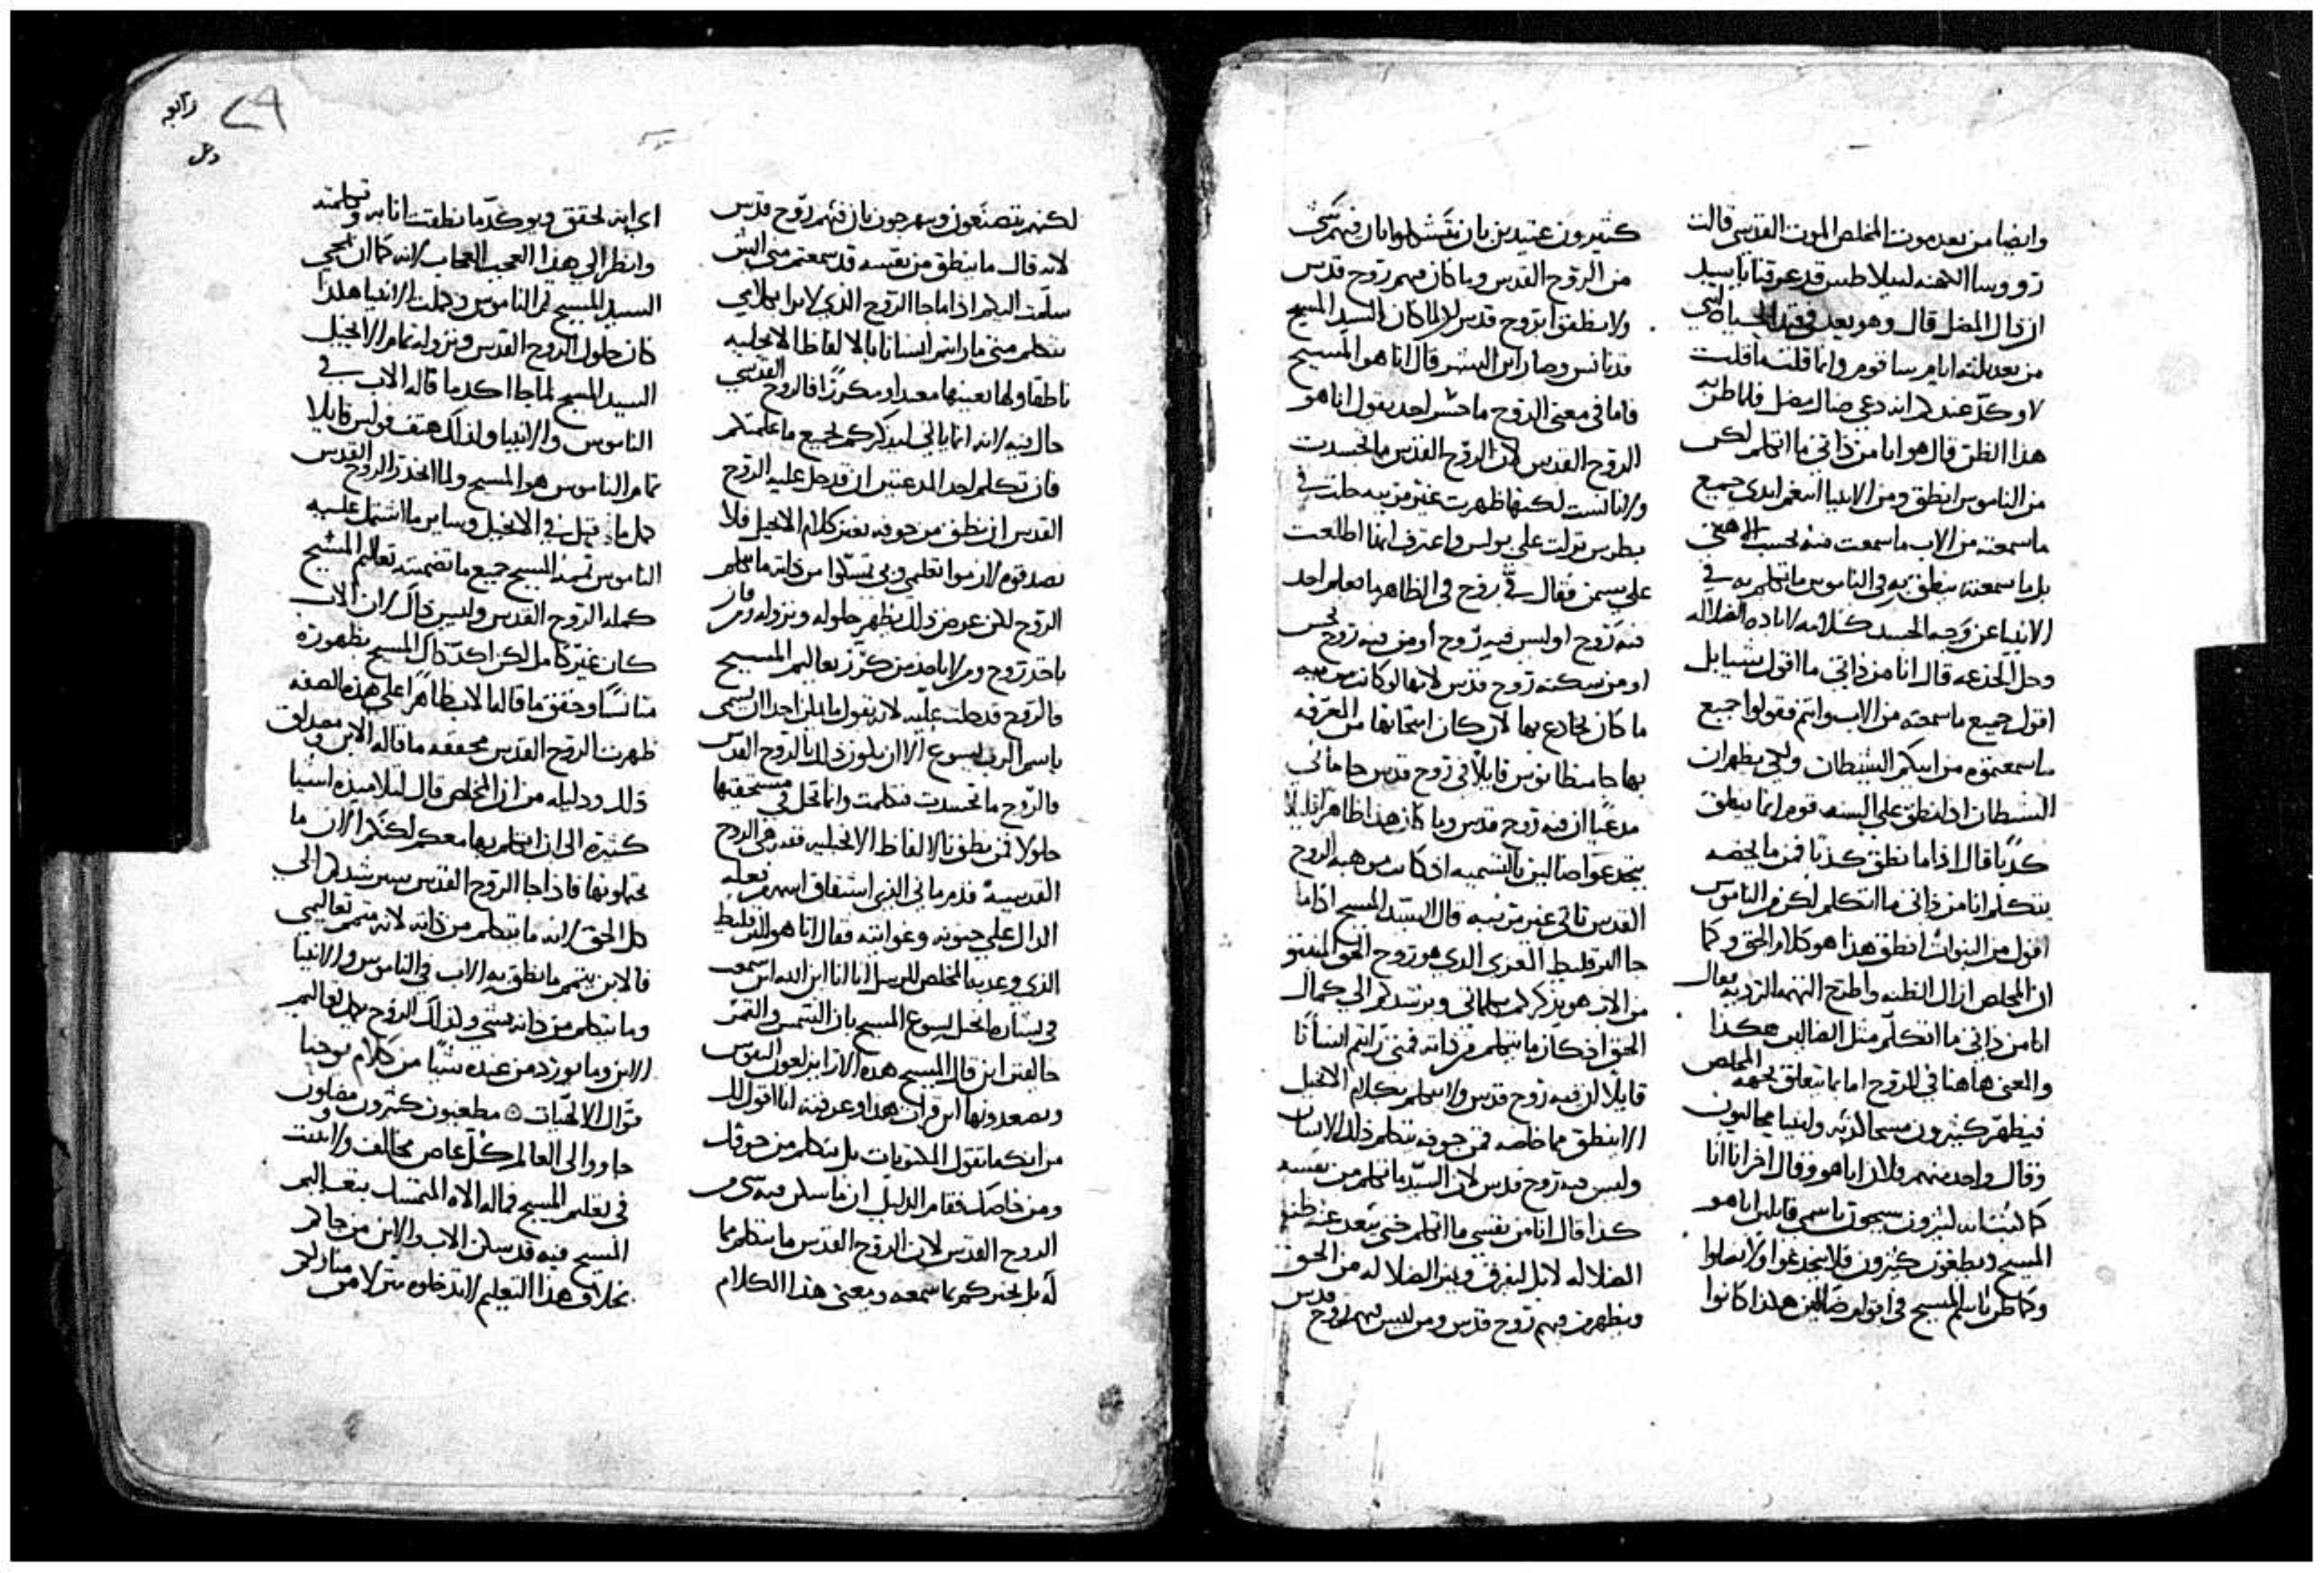 وايضا من بعد موت المخلص الموت القدسي قالت
روسا الكهنه لبيلاطس قد عرفنا يا سيد
ان ذاك المضل قال وهو بعد في قيد الحياه انني
من بعد ثلثه ايام ساقوم وانما قلت ما قلت
هذا الظن قال هو انا من ذاتي ما اتكلم لكن
من الناموس انطق ومن الانبيا
ما سمعته من الاب ما سمعت منه بحسب
بل ما سمعته ينطق به في الناموس ما تكلم به في
الانبيا عن وجه الجسد
وحل الخدعه قال انا من ذاتي ما اقول شيا بل
اقول جميع ما سمعته من الاب وانتم فقولوا جميع
ما سمعتموه من ابيكم الشيطان ولكي يظهر ان
الشيطان اذا نطق على السنه قوم انما ينطق
كذبا قال اذا ما نطق كذبا فمن ما يخصه
يتكلم انا من ذاتي ما اتكلم لكن من الناموس
اقول من النبوات انطق هذا هو كلام الحق وكما
ان المخلص ازال الظنه واطرح التهمه الرديه فقال
انا من ذاتي ما اتكلم مثل الضالين هكذا
والمعنى هاهنا في الروح اما ما يتعلق بجهه المخلص
فيظهر كثيرون مسحا كذبه وانبيا محاليون
وقال واحد منهم فلان انا هو وقال اخر انا انا
كثيرون سيجون باسمي قايلين انا هو
المسيح ويطغون كثيرون فلا ينخدعوا ولا يضلوا
وكما ظن بالمسيح في انه ضالين هكذا كانوا
كثيرون عتيدين بان
من الروح القدس وما كان فيهم روح قدس
ولا ينطقوا بروح قدس لانه لما كان السيد المسيح
قد تانس وصار ابن البشر قال انا هو المسيح
فاما في معنى الروح ما جسر احد يقول انا هو
الروح القدس لان الروح القدس ما تجسدت
ولا تانست لكنها ظهرت غير مرتيه حلت في
بطرس نزلت على بولس واعترف انها اطلعت
على سمن فقال في روح في الظاهر ما تعلم احد
فيه روح او ليس فيه روح او من فيه روح نجس
او من سكنته روح قدس لانها لو كانت مرييه
ما كان يخادع بها لان كان امتحانها من المعرفه
بها جا سطانوس قايلا في روح قدس جا ماني
مدعيا ان فيه روح قدس وما كان هذا ظاهرا ليلا
ينخدعوا ضالين بالتسميه اذ كانت موهبه الروح
القدس تاتي غير مرييه قال السيد المسيح اذا ما
جا البرقليط المعزي الذي هو روح الحق المنبثق
من الاب هو يذكركم بكلماتي ويرشدكم الى كمال
الحق اذ كان ما يتكلم من ذاته فمتى رايتم انسانا
قايلا ان فيه روح قدس ولا يتكلم بكلام الانجيل
الا ينطق مما خاصه فمن جوفه يتكلم ذلك الانسان
وليس فيه روح قدس لان السيد ما تكلم من نفسه
كذا قال انا من نفسي ما اتكلم حتى يبعد عنه ظن
الضلاله لا بل ليفرق وبين الضلاله من الحق
ويظهر من فيهم روح قدس ومن ليس فيهم روح قدس
لكنهم يتصنعون ويبهرجون بان فيهم روح قدس
لانه قال ما ينطق من نفسه قد سمعتم مني التي
سلمت اليكم اذا ما جا الروح الذي لا يرا بكلامي
يتكلم متى ما رايتم انسانا بالالفاظ الانجيليه
ناطقا ولها بعينها معيدا ومكررا فالروح القدسي
حال فيه لانه انما ياتي ليذكركم بجميع ما علمتكم
فان تكلم احد المدعيين ان قد حل عليه الروح
القدس ان ينطق من جوفه بغير كلام الانجيل فلا
تصدقوه لازموا تعليمي وبي تمسكوا من ذاته ما يتكلم
الروح لكن عوض ذلك يظهر حلوله ونزوله ومن
ياخذ روح ومن لا ياخذ من كرز بتعاليم المسيح
فالروح قد حلت عليه لانه يقول ما يمكن احدا ان يسمي
باسم الرب يسوع الا ان يكون ذلك بالروح القدس
فالروح ما تجسدت فتكلمت وانما تحل في مستحقيها
حلولا فمن نطق بالالفاظ الانجيليه ففيه هي الروح
القدسيه قدم ماني الذي اشتقاق اسمه من فعله
الدال على جنونه وغوايته فقال انا هو البرقليط
الذي وعد به المخلص للرسل انا انا ابن الله اين سمعت
في بشاره انجيل يسوع المسيح بان الشمس والقمر
خالقين اين قال المسيح هذه الان يرفعون النفوس
ويصعدونها اين قرات هذا وعرفته انما اقول لك
من انك ما تقول المكتوبات بل تتكلم من جوفك
ومن خاصك فقام الدليل ان ما سكن فيه شي من
الروح القدس لان الروح القدس ما يتكلم بما
له بل يخبركم بما سمعه ومعنى هذا الكلام
اي انه يحقق ويوكد ما نطقت انا به وتكلمته
وانظر الي هذا العجب العجاب لانه كما ان بمجي
السيد المسيح تم الناموس وكملت الانبيا هكذا
كان حلول الروح القدس ونزوله تمام الانجيل
السيد المسيح لما جا اكد ما قاله الاب في
الناموس والانبيا ولذلك هتف بولس قايلا
تمام الناموس هو المسيح ولما انحدر الروح القدس
كمل ما قيل في الانجيل وساير ما اشتمل عليه
الناموس تممه المسيح جميع ما تضمنته تعاليم المسيح
كمله الروح القدس وليس ذاك لان الاب
كان غير كامل لكن اكد ذاك المسيح بظهوره
متانسا وحقق ما قاله الاب ظاهرا على هذه الصفه
ظهرت الروح القدس محققه ما قاله الابن ومصدق
ذلك ودليله من ان المخلص قال لتلاميذه اشيا
كثيره الى ان اتكلم بها معكم لكنكم الان ما
تحتملونها فاذا جا الروح القدس سيرشدكم الى
كل الحق لانه ما يتكلم من ذاته لانه متمم تعاليمي
فالابن يتمم ما نطق به الاب في الناموس والانبيا
وما يتكلم من ذاته بشي ولذلك الروح يكمل تعاليم
الابن وما يورد من عنده شيا من كلام يوحنا
قوال الالاهيات ۞ مطغيون كثيرون مضلون
جاووا الى العالم كل عاص مخالف ولا يثبت
في تعليم المسيح فماله الاه المتمسك بتعاليم
المسيح فيه قد سكن الاب والابن من جاكم
بخلاف هذا التعليم لا تدخلوه منازلكم